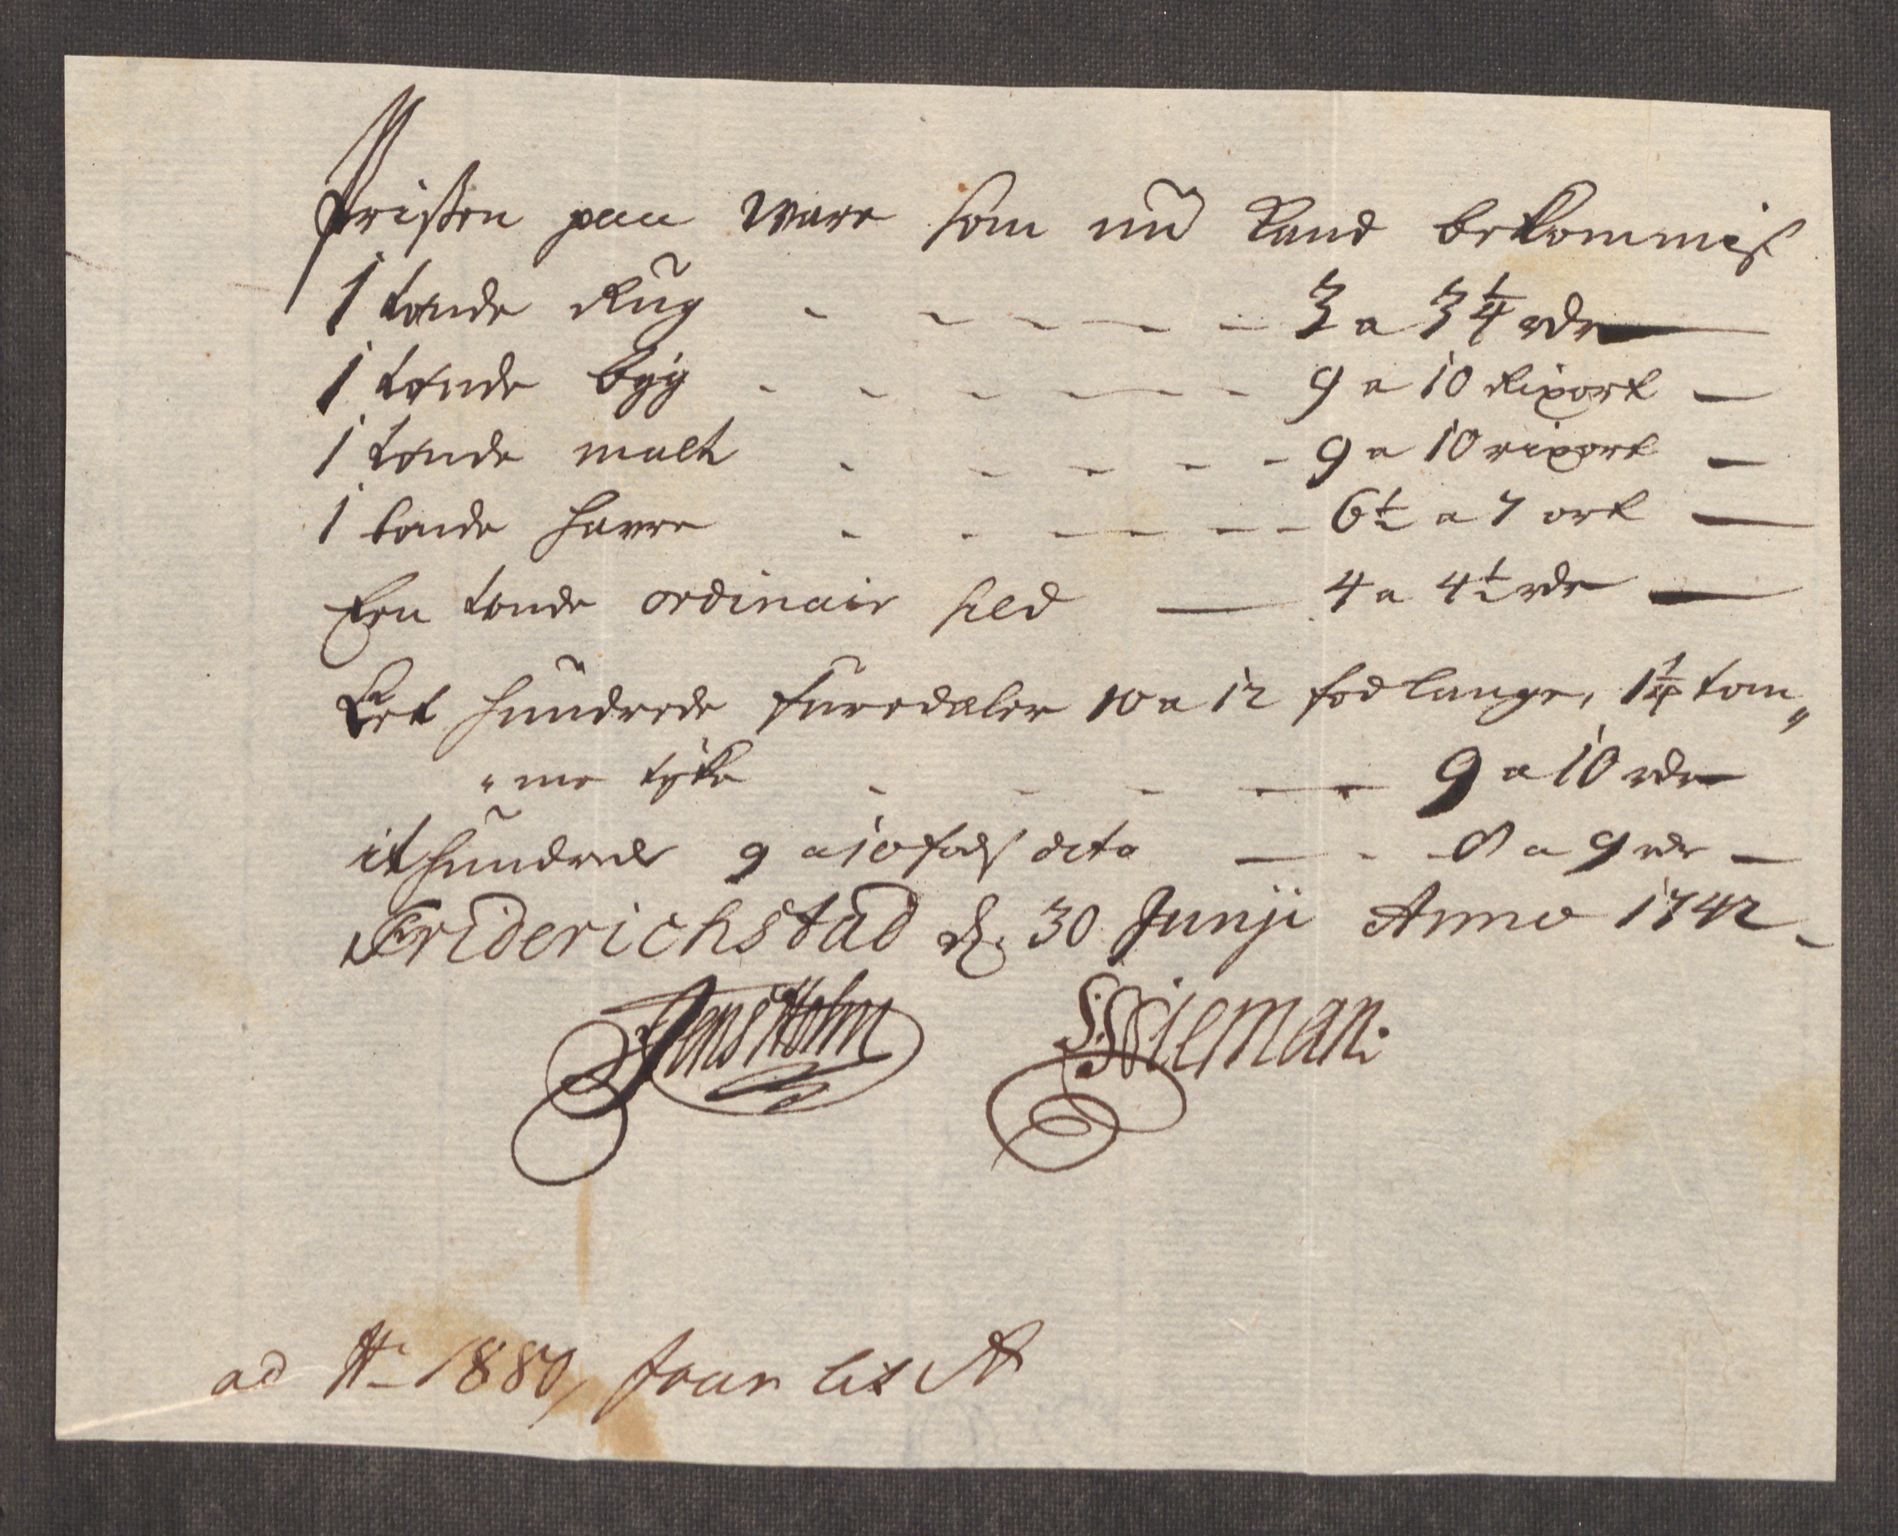 Prissen paa ware som nu kand bekommis
1 tønde Rug - - - - - 3 a 3 1/4 rdr
1 tønde byg - - - - - 9 a 10 Rixort
1 tønde malt - - - - - 9 a 10 rixort
1 tønde havre - - - - - 6 1/2 a 7 ort
Een tønde ordinair sild — 4 a 4 1/2 rdr
Eet hundrede furedæler 10 a 12 fod lange, 1 1/4 tom„
„me tyke - - - - - 9 a 10 rdr
it hundrede 9 a 10 fods dito — - - 8 a 9 rdr
Friderichstad d. 30 Junji Anno 1742
Jens Holm S: Wieman:
ad No 1880, foar lit A